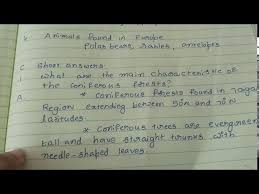 Animals found in Europe
Polar bears, Sables, antelopes
C Short answers.
1 What are the main characteristic of
the coniferous forests?
A. * Coniferous forests found in Taiga
Region extending between 50N and 70N
latitudes.
* Coniferous trees are evergreen
tall and have straight trunks with
needle-shaped leaves.